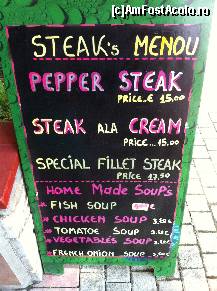 [c]AmFostAcolo.ro
STEAK's MENOU
PEPPER STEAK
PRICE.€ 15,00
STEAK ALA CREAM
PRICE... 15,00
SPECIAL FILLET STEAK
PRICE 17,50
HOME MADE SOUP'S
FISH SOUP
CHICKEN SOUP
TOMATOE SOUP
VEGETABLES SOUP
FRENCH ONION SOUP